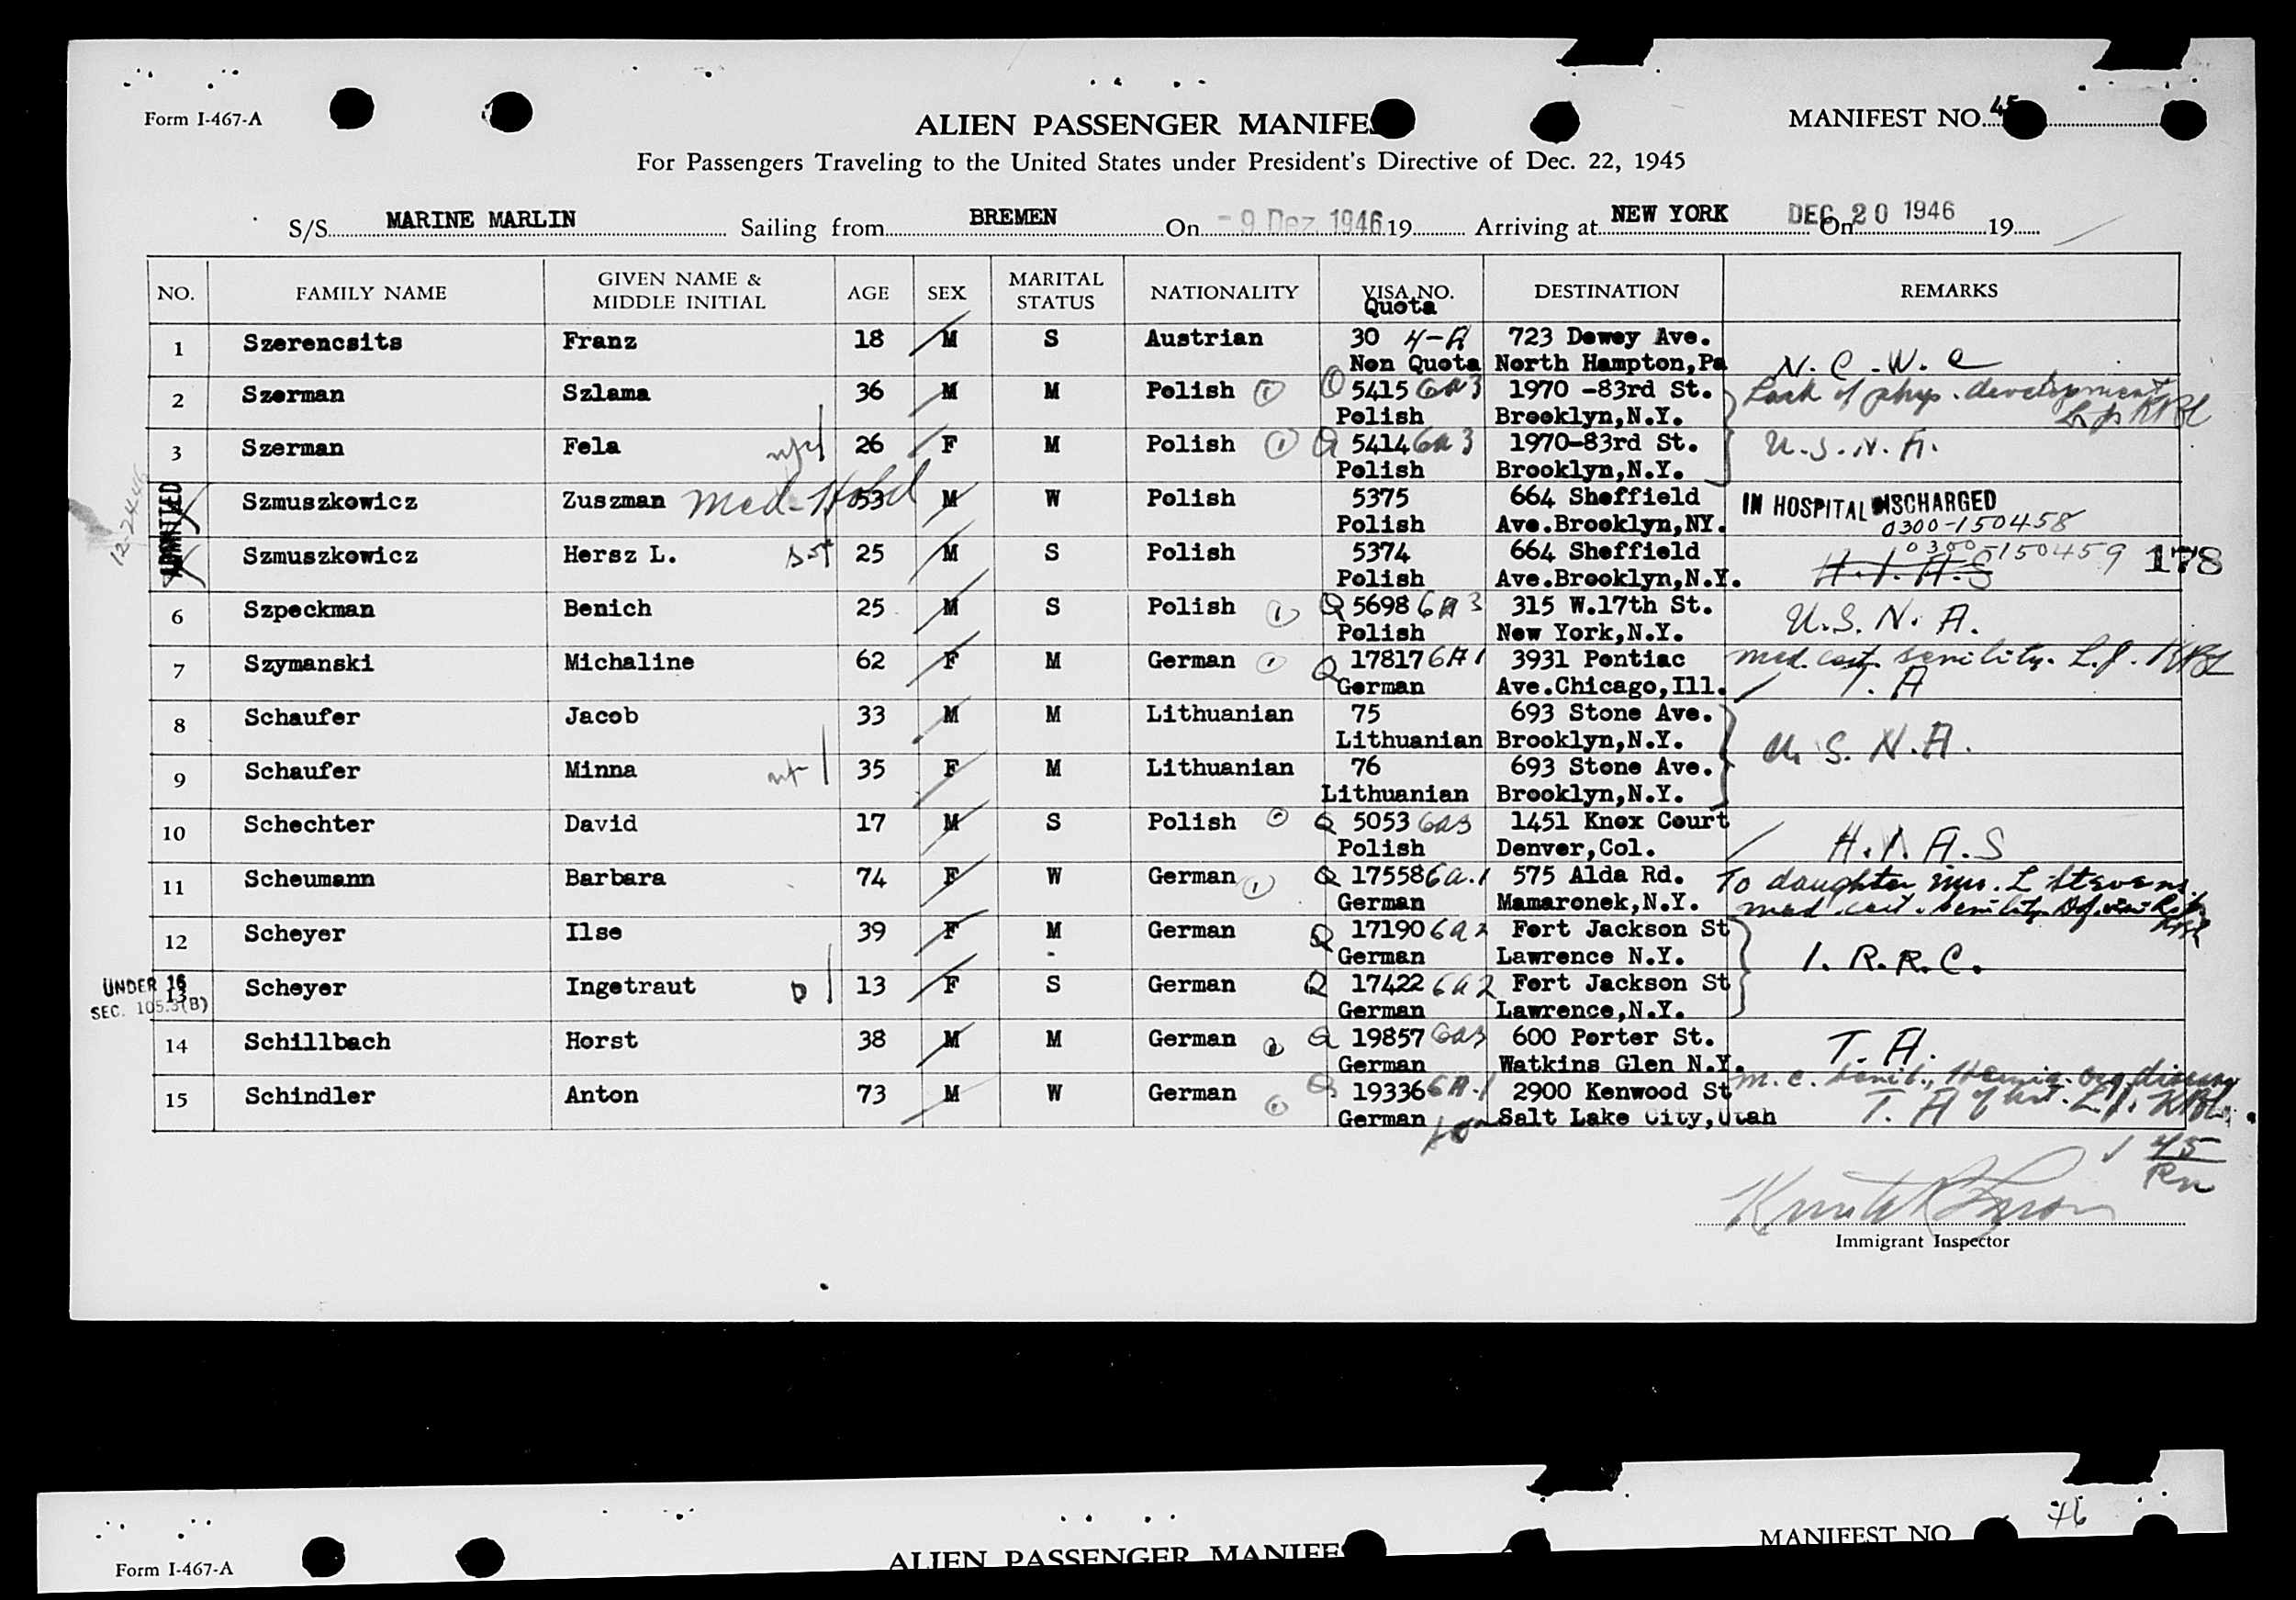 Form I-467-A
ALIEN PASSENGER MANIFES
MANIFEST NO. 45
For Passengers Traveling to the United States under President's Directive of Dec. 22, 1945
S/S MARINE MARLIN Sailing from BREMEN On - 9 Dez. 1946 19 Arriving at NEW YORK On DEC 20 1946 19
NO. FAMILY NAME GIVEN NAME & MIDDLE INITIAL AGE SEX MARITAL STATUS NATIONALITY VISA NO. DESTINATION REMARKS
Quota
1 Szerencsits Franz 18 M S Austrian 30 4-A 723 Dewey Ave.
Non Quota North Hampton,Pa N.C.W.C
2 Szerman Szlama 36 M M Polish 5415 6A3 1970 -83rd St. Lack of phys. development
Polish Brooklyn,N.Y.
3 Szerman Fela 26 F M Polish 5414 6A3 1970-83rd St. U.S.N.A.
Polish Brooklyn,N.Y.
12-24-46 ADMITTED
Szmuszkowicz Zuszman Med-Hold 53 M W Polish 5375 664 Sheffield IN HOSPITAL DISCHARGED
Polish Ave.Brooklyn,NY. 0300-150458
Szmuszkowicz Hersz L. 25 M S Polish 5374 664 Sheffield 0300-150459 178
Polish Ave.Brooklyn,N.Y. H.I.A.S
6 Szpeckman Benich 25 M S Polish Q 5698 6A3 315 W.17th St. U.S.N.A.
Polish New York,N.Y.
7 Szymanski Michaline 62 F M German Q 17817 6A1 3931 Pontiac med. cert. senility.
German Ave.Chicago,Ill.
8 Schaufer Jacob 33 M M Lithuanian 75 693 Stone Ave. U.S.N.A.
Lithuanian Brooklyn,N.Y.
9 Schaufer Minna 35 F M Lithuanian 76 693 Stone Ave.
Lithuanian Brooklyn,N.Y.
10 Schechter David 17 M S Polish Q 5053 6A3 1451 Knox Court H.I.A.S
Polish Denver,Col.
11 Scheumann Barbara 74 F W German Q 17558 6A.1 575 Alda Rd. To daughter, Mrs. L Stevens
German Mamaronek,N.Y. med. cert. senility
12 Scheyer Ilse 39 F M German Q 17190 6A2 Fort Jackson St I.R.R.C.
German Lawrence N.Y.
UNDER 16
SEC. 105.3(B)
13 Scheyer Ingetraut D 13 F S German Q 17422 6A2 Fort Jackson St
German Lawrence,N.Y.
14 Schillbach Horst 38 M M German Q 19857 6A3 600 Porter St. T.A.
German Watkins Glen N.Y.
15 Schindler Anton 73 M W German Q 19336 6A.1 2900 Kenwood St
German Salt Lake City,Utah T.A
45
Immigrant Inspector
Form I-467-A
ALIEN PASSENGER MANIFE
MANIFEST NO
46